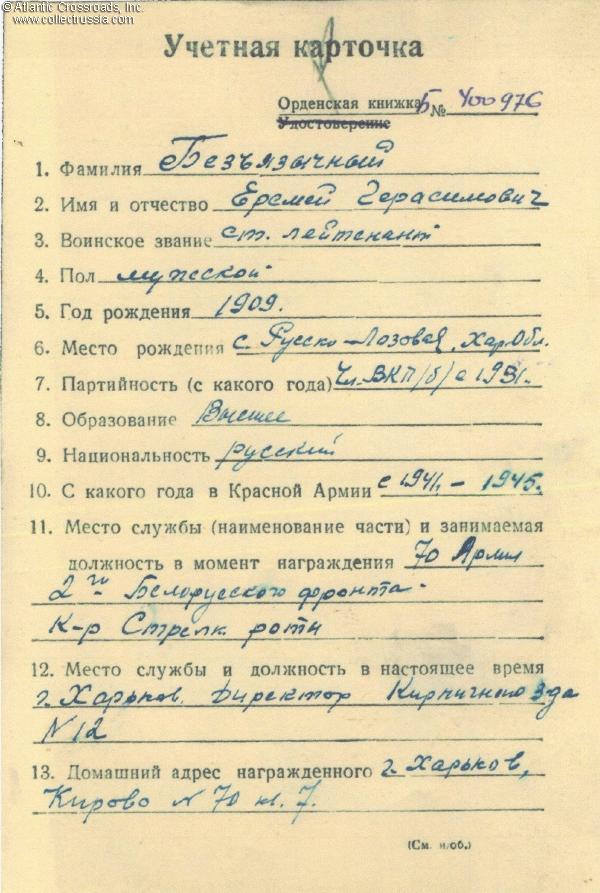 © Atlantic Crossroads, Inc.
www.collectrussia.com
Учетная карточка
Орденская книжка Б № 400976
Удостоверение
1. Фамилия Безъязычный
2. Имя и отчество Еремей Герасимович
3. Воинское звание ст. лейтенант
4. Пол мужской
5. Год рождения 1909.
6. Место рождения с. Русско-Лозовая, Хар. Обл.
7. Партийность (с какого года) Чл. ВКП/б/ с 1931.
8. Образование Высшее
9. Национальность русский
10. С какого года в Красной Армии с 1941 – 1945.
11. Место службы (наименование части) и занимаемая
должность в момент награждения 70 Армия
2го Белорусского фронта
К-р Стрелк. роты
12. Место службы и должность в настоящее время
г. Харьков. Директор Кирпичного з-да
N 12
13. Домашний адрес награжденного г. Харьков,
Кирово N 70 кв. 7.
(См. н/об.)